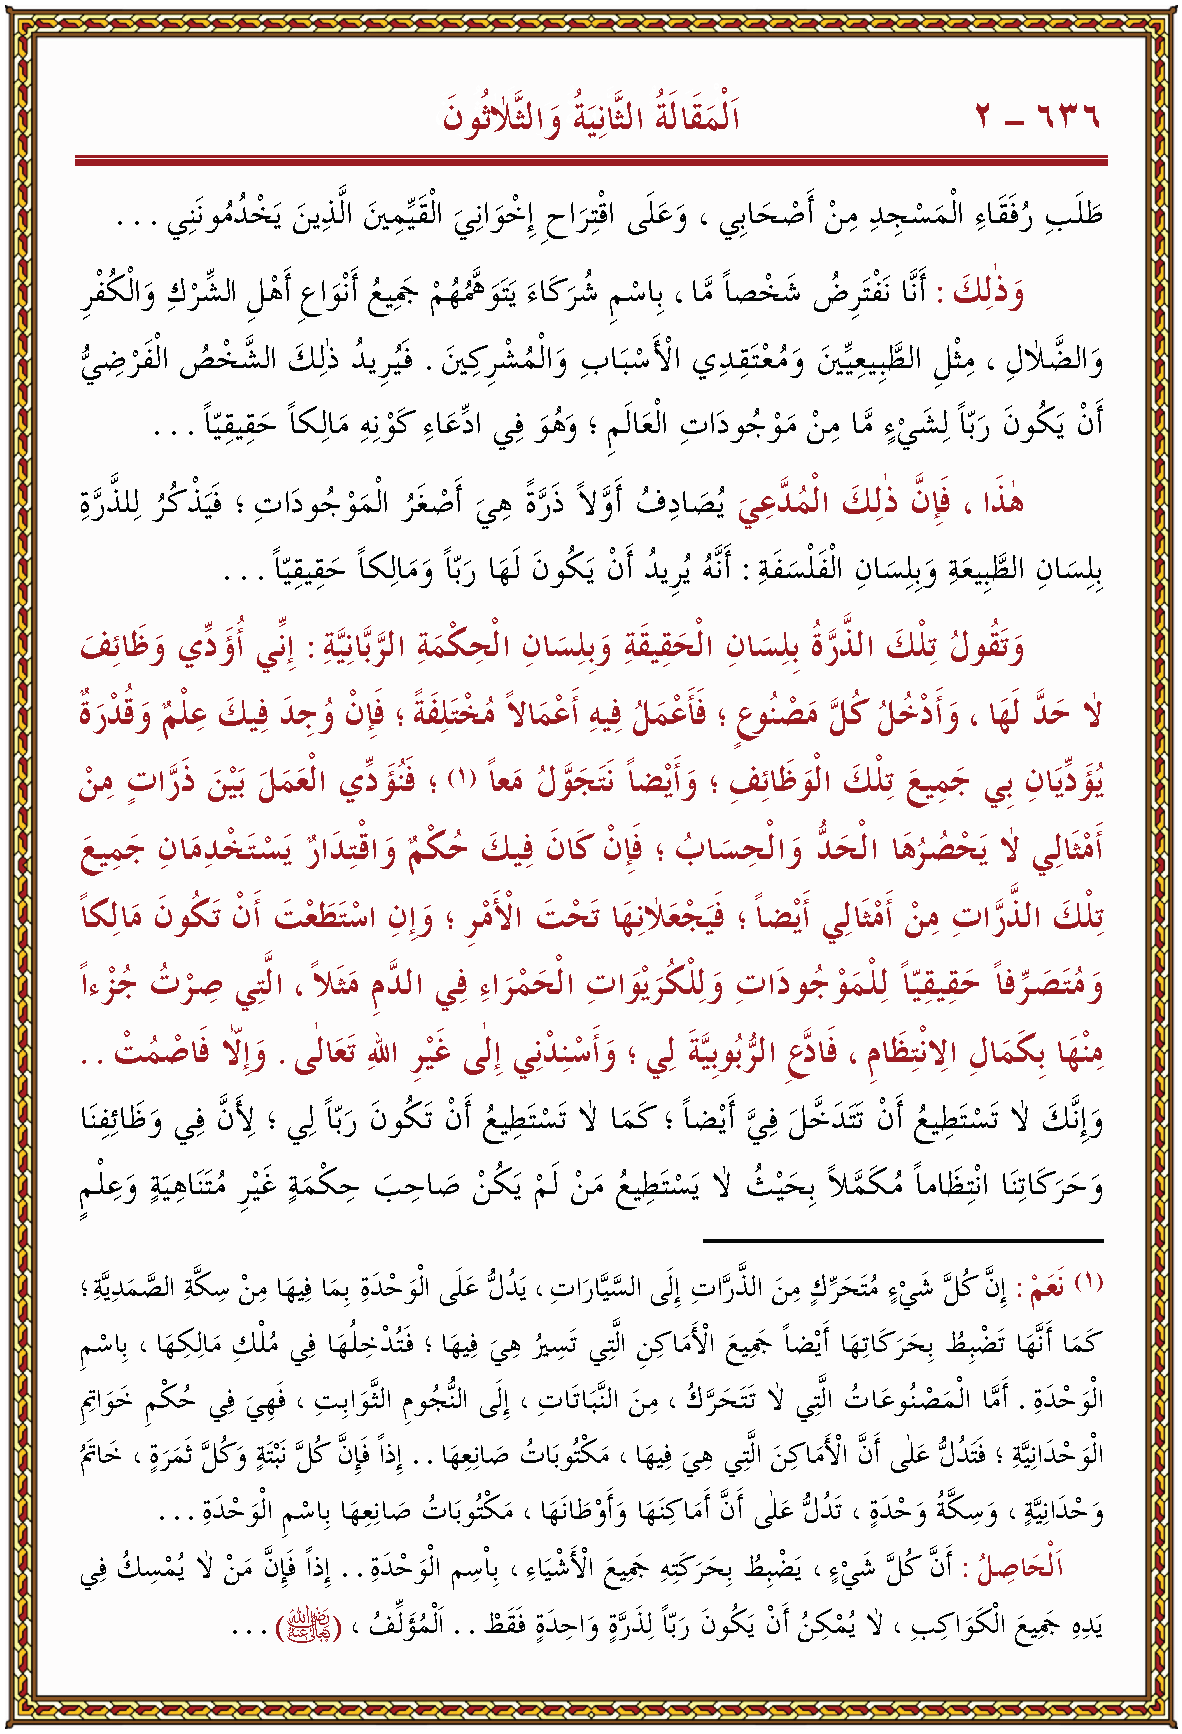 ٦٣٦ – ٢ اَلْمَقَالَةُ الثَّانِيَةُ وَالثَّلاٰثُونَ
طَلَبِ رُفَقَاءِ الْمَسْجِدِ مِنْ أَصْحَابِي ، وَعَلَى اقْتِرَاحِ إِخْوَانِيَ الْقَيِّمِينَ الَّذِينَ يَخْدُمُونَنِي . . .
وَذٰلِكَ : أَنَّا نَفْتَرِضُ شَخْصاً مَّا ، بِاسْمِ شُرَكَاءَ يَتَوَهَّمُهُمْ جَمِيعُ أَنْوَاعِ أَهْلِ الشِّرْكِ وَالْكُفْرِ
وَالضَّلاٰلِ ، مِثْلِ الطَّبِيعِيِّينَ وَمُعْتَقِدِي الْأَسْبَابِ وَالْمُشْرِكِينَ . فَيُرِيدُ ذٰلِكَ الشَّخْصُ الْفَرَضِيُّ
أَنْ يَكُونَ رَبّاً لِشَيْءٍ مَّا مِنْ مَوْجُودَاتِ الْعَالَمِ ؛ وَهُوَ فِي ادِّعَاءِ كَوْنِهِ مَالِكاً حَقِيقِيّاً . . .
هٰذَا ، فَإِنَّ ذٰلِكَ الْمُدَّعِيَ يُصَادِفُ أَوَّلاً ذَرَّةً هِيَ أَصْغَرُ الْمَوْجُودَاتِ ؛ فَيَذْكُرُ لِلذَّرَّةِ
بِلِسَانِ الطَّبِيعَةِ وَبِلِسَانِ الْفَلْسَفَةِ : أَنَّهُ يُرِيدُ أَنْ يَكُونَ لَهَا رَبّاً وَمَالِكاً حَقِيقِيّاً . . .
وَتَقُولُ تِلْكَ الذَّرَّةُ بِلِسَانِ الْحَقِيقَةِ وَبِلِسَانِ الْحِكْمَةِ الرَّبَّانِيَّةِ : إِنِّي أُؤَدِّي وَظَائِفَ
لاٰ حَدَّ لَهَا ، وَأَدْخُلُ كُلَّ مَصْنُوعٍ ؛ فَأَعْمَلُ فِيهِ أَعْمَالاً مُخْتَلِفَةً ؛ فَإِنْ وُجِدَ فِيكَ عِلْمٌ وَقُدْرَةٌ
يُؤَدِّيَانِ بِي جَمِيعَ تِلْكَ الْوَظَائِفِ ؛ وَأَيْضاً نَتَجَوَّلُ مَعاً (١) ؛ فَنُؤَدِّي الْعَمَلَ بَيْنَ ذَرَّاتٍ مِنْ
أَمْثَالِي لاٰ يَحْصُرُهَا الْحَدُّ وَالْحِسَابُ ؛ فَإِنْ كَانَ فِيكَ حُكْمٌ وَاقْتِدَارٌ يَسْتَخْدِمَانِ جَمِيعَ
تِلْكَ الذَّرَّاتِ مِنْ أَمْثَالِي أَيْضاً ؛ فَيَجْعَلاٰنِهَا تَحْتَ الْأَمْرِ ؛ وَإِنِ اسْتَطَعْتَ أَنْ تَكُونَ مَالِكاً
وَمُتَصَرِّفاً حَقِيقِيّاً لِلْمَوْجُودَاتِ وَلِلْكُرَيْوَاتِ الْحَمْرَاءِ فِي الدَّمِ مَثَلاً ، الَّتِي صِرْتُ جُزْءاً
مِنْهَا بِكَمَالِ الِانْتِظَامِ ، فَادَّعِ الرُّبُوبِيَّةَ لِي ؛ وَأَسْنِدْنِي إِلَى غَيْرِ اللهِ تَعَالٰى . وَإِلاَّ فَاصْمُتْ . .
وَإِنَّكَ لاٰ تَسْتَطِيعُ أَنْ تَتَدَخَّلَ فِيَّ أَيْضاً ؛ كَمَا لاٰ تَسْتَطِيعُ أَنْ تَكُونَ رَبّاً لِي ؛ لِأَنَّ فِي وَظَائِفِنَا
وَحَرَكَاتِنَا انْتِظَاماً مُكَمَّلاً بِحَيْثُ لاٰ يَسْتَطِيعُ مَنْ لَمْ يَكُنْ صَاحِبَ حِكْمَةٍ غَيْرِ مُتَنَاهِيَةٍ وَعِلْمٍ
(١) نَعَمْ : إِنَّ كُلَّ شَيْءٍ مُتَحَرِّكٍ مِنَ الذَّرَّاتِ إِلَى السَّيَّارَاتِ ، يَدُلُّ عَلَى الْوَحْدَةِ بِمَا فِيهَا مِنْ سِكَّةِ الصَّمَدِيَّةِ ؛
كَمَا أَنَّهَا تَضْبِطُ بِحَرَكَاتِهَا أَيْضاً جَمِيعَ الْأَمَاكِنِ الَّتِي تَسِيرُ هِيَ فِيهَا ؛ فَتُدْخِلُهَا فِي مُلْكِ مَالِكِهَا ، بِاسْمِ
الْوَحْدَةِ . أَمَّا الْمَصْنُوعَاتُ الَّتِي لاٰ تَتَحَرَّكُ ، مِنَ النَّبَاتَاتِ ، إِلَى النُّجُومِ الثَّوَابِتِ ، فَهِيَ فِي حُكْمِ خَوَاتِمِ
الْوَحْدَانِيَّةِ ؛ فَتَدُلُّ عَلٰى أَنَّ الْأَمَاكِنَ الَّتِي هِيَ فِيهَا ، مَكْتُوبَاتُ صَانِعِهَا . . إِذاً فَإِنَّ كُلَّ نَبْتَةٍ وَكُلَّ ثَمَرَةٍ ، خَاتَمُ
وَحْدَانِيَّةٍ ، وَسِكَّةُ وَحْدَةٍ ، تَدُلُّ عَلٰى أَنَّ أَمَاكِنَهَا وَأَوْطَانَهَا ، مَكْتُوبَاتُ صَانِعِهَا بِاسْمِ الْوَحْدَةِ . . .
اَلْحَاصِلُ : أَنَّ كُلَّ شَيْءٍ ، يَضْبِطُ بِحَرَكَتِهِ جَمِيعَ الْأَشْيَاءِ ، بِاسْمِ الْوَحْدَةِ . . إِذاً فَإِنَّ مَنْ لاٰ يُمْسِكُ فِي
يَدِهِ جَمِيعَ الْكَوَاكِبِ ، لاٰ يُمْكِنُ أَنْ يَكُونَ رَبّاً لِذَرَّةٍ وَاحِدَةٍ فَقَطْ . . اَلْمُؤَلِّفُ ، (رَضِيَ اللهُ تَعَالٰى عَنْهُ) . . .